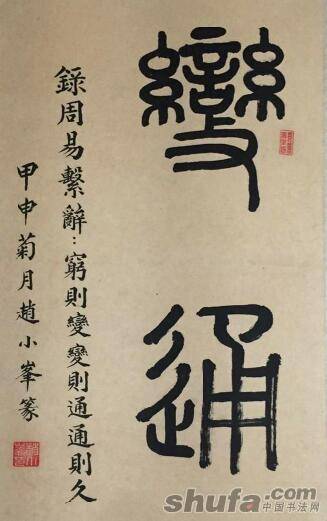 變通
錄周易繫辭：窮則變變則通通則久
甲申菊月趙小峯篆
shufa.com
中国书法网